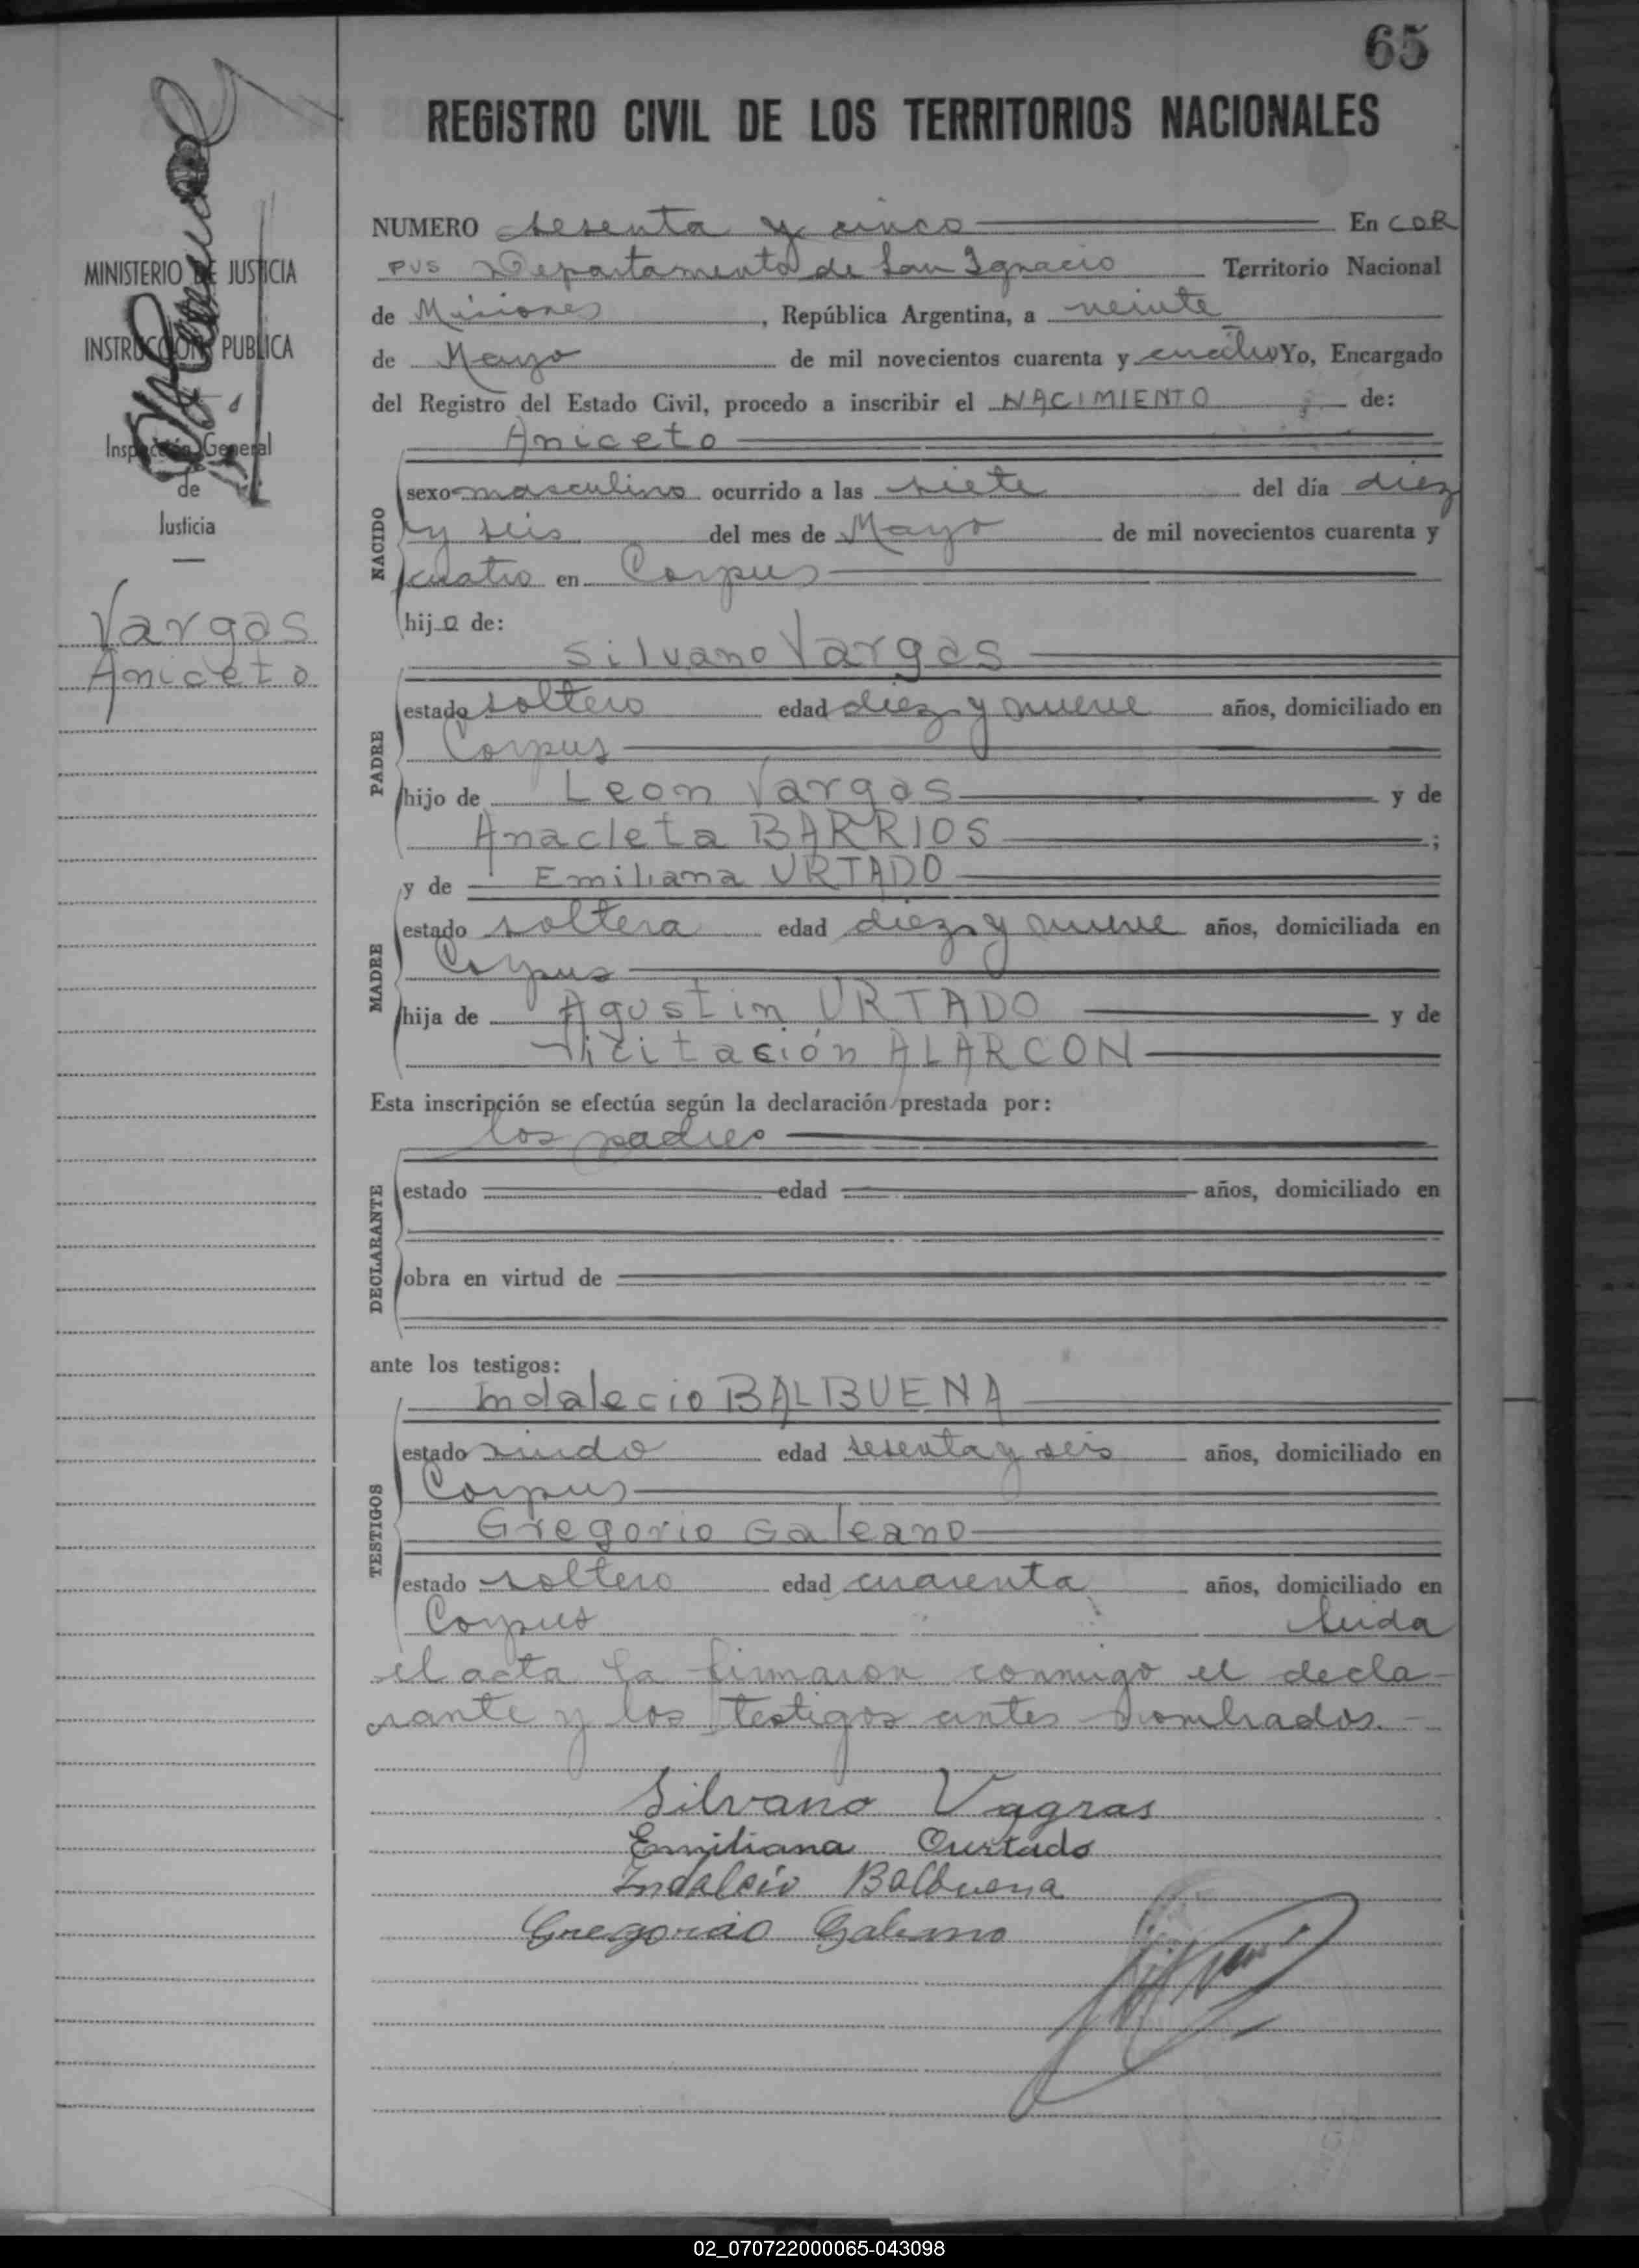 65
REGISTRO CIVIL DE LOS TERRITORIOS NACIONALES
MINISTERIO DE JUSTICIA
INSTRUCCION PUBLICA
Inspección General
de
Justicia
Vargas
Aniceto
NUMERO sesenta y cinco En COR
PUS Departamento de San Ignacio Territorio Nacional
de Misiones, República Argentina, a veinte
de Mayo de mil novecientos cuarenta y cuatro Yo, Encargado
del Registro del Estado Civil, procedo a inscribir el NACIMIENTO de:
Aniceto
NACIDO
sexo masculino ocurrido a las siete del día diez
y seis del mes de Mayo de mil novecientos cuarenta y
cuatro en Corpus
hijo de:
Silvano Vargas
PADRE
estado soltero edad diez y nueve años, domiciliado en
Corpus
hijo de Leon Vargas y de
Anacleta BARRIOS ;
y de Emiliana URTADO
MADRE
estado soltera edad diez y nueve años, domiciliada en
Corpus
hija de Agustin URTADO y de
Vicitación ALARCON
Esta inscripción se efectúa según la declaración prestada por:
los padres
DECLARANTE
estado edad años, domiciliado en
obra en virtud de
ante los testigos:
Indalecio BALBUENA
TESTIGOS
estado viudo edad sesenta y seis años, domiciliado en
Corpus
Gregorio Galeano
estado soltero edad cuarenta años, domiciliado en
Corpus leida
el acta la firmaron conmigo el decla-
rante y los testigos antes nombrados.-
Silvano Vagras
Emiliana Ourtado
Indalcio Balbuena
Gregorio Galeano
02_070722000065-043098